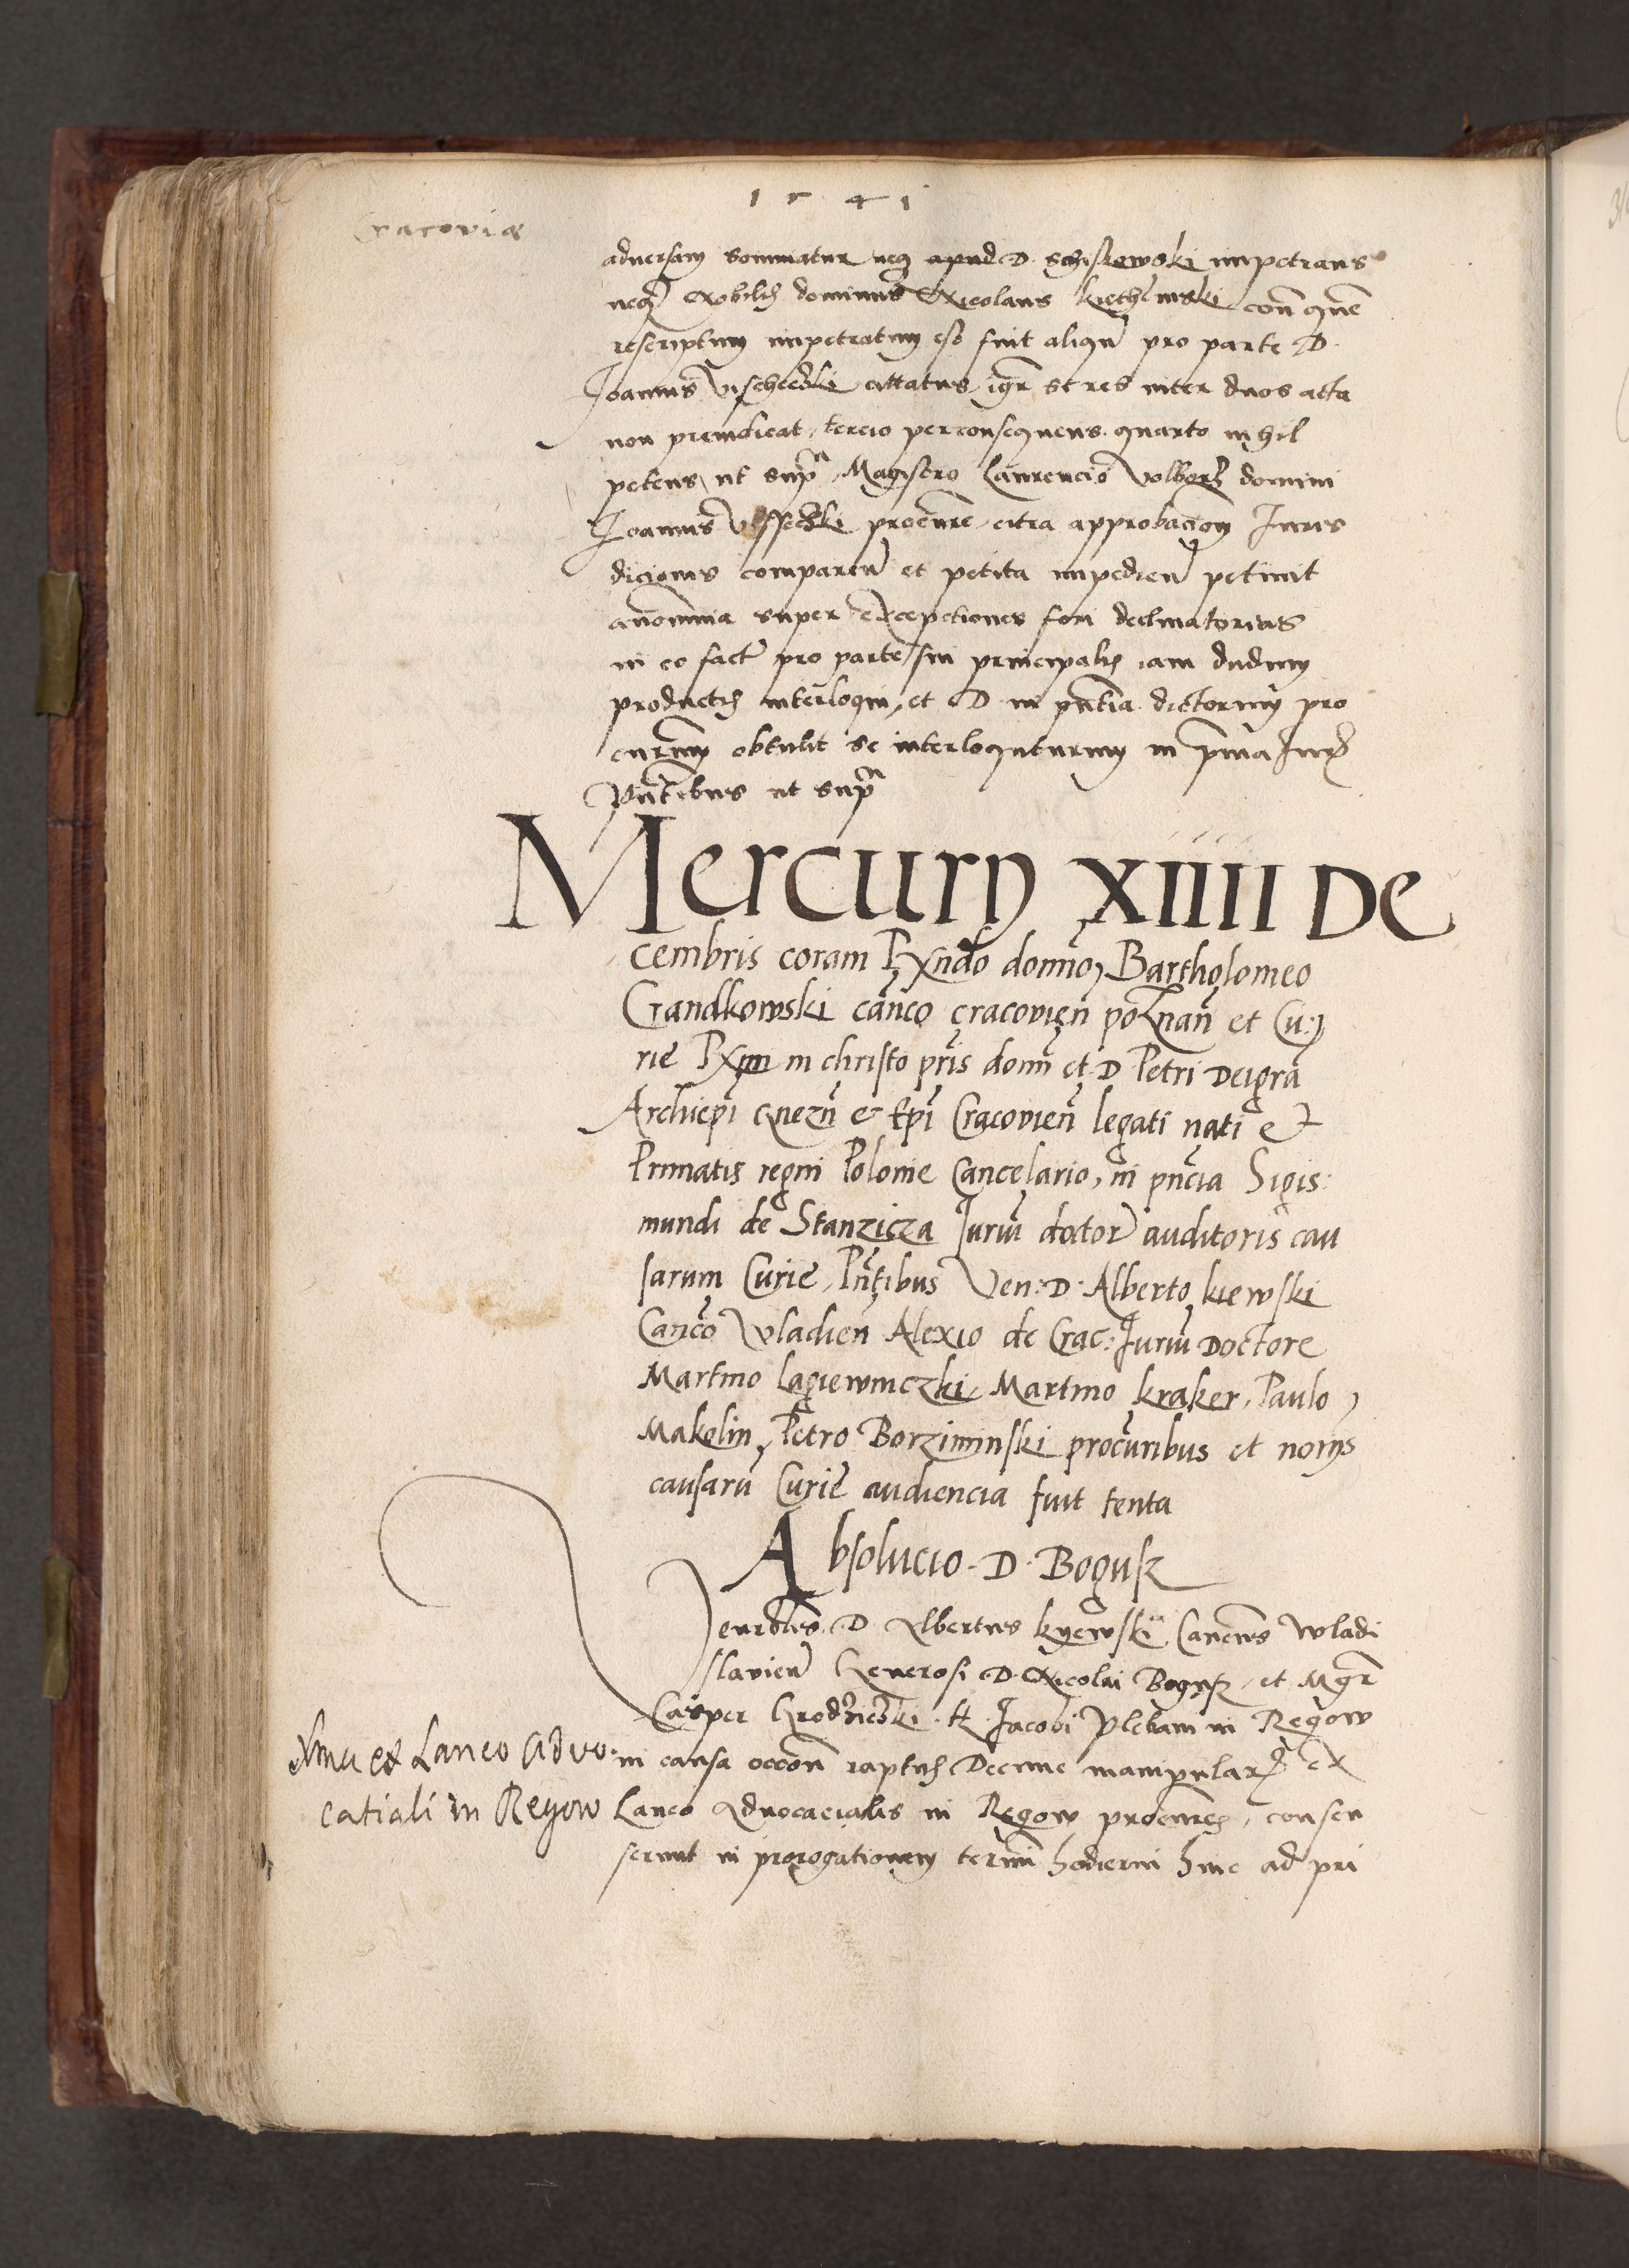 1541
Cracoviæ
adversam nominatur neq apud D. impetrans
neq Nobilis dominus Nicolaus con quem
rescriptum impetratum esse fuit aliqn pro parte D.
Joannis citatus igr et res inter duos acta
non preiudicat, tercio perconsequens. quarto nihil
petens, ut supra, Magistro Laurencio Volborz domini
Joannis procuratore, citra approbacionem Juris
dicionis comparen et petita impedien petivit
an omnia super excepciones fori declinatorias
in eo fact pro parte sui principalis iam dudum
productis interloqui, et D. in pntia dictorum pro
curatorum obtulit se interloquuturum in prima Jurid
Pntibus ut supra
Mercurij XIIII De
cembris coram Rxndo domino Bartholomeo
Gandkowski canco cracovien poznan et Cu:
rie Rxmi in christo pris domi et D Petri Dei gra
Archiepi Gnezn & Epi Cracovien legati nati et
Primatis regni Polonie Cancelario, in pncia Sigis:
mundi de Stanzicza Juriu doctor auditoris cau
sarum Curie, Pntibus Ven: D: Alberto kiewski
Canco Wladien Alexio de Crac: Juriu Doctore
Martino Lagiewniczki, Martino kraker, Paulo
Makolin, Petro Borziminski procuribus et noriis
causaru Curie audiencia fuit tenta
Absolucio D. Bogusz
Venrbles D Albertus kyewski Canonus Wladi
slavien Generosi D. Nicolai Bogusz, et Mgr
Casper Grodziczki H. Jacobi Plebani in Regow
Xma ex Laneo Advo:
catiali in Regow
in causa occon raptus Decime manipular ex
Laneo Advocacialis in Regow procures, consen
serunt in prorogationem termini hodierni hinc ad pri